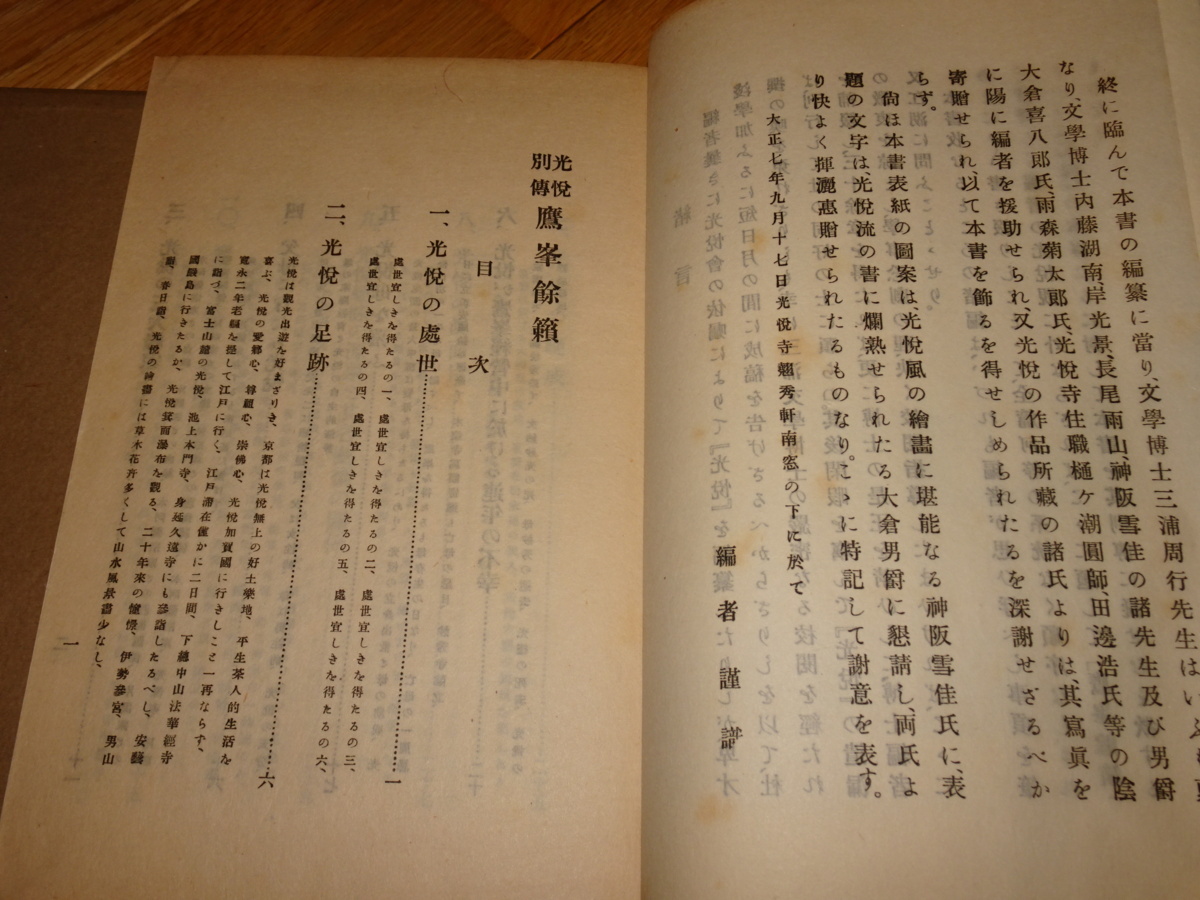 終に臨んで本書の編纂に當り、文學博士三浦周行先生はいふも更
なり、文學博士内藤湖南、岸光景、長尾雨山、神阪雪佳の諸先生及び男爵
大倉喜八郎氏、雨森菊太郎氏、光悅寺住職樋ケ潮圓師、田邊浩氏等の陰
に陽に編者を援助せられ、又光悅の作品所藏の諸氏よりは、其寫眞を
寄贈せられ、以て本書を飾るを得せしめられたるを深謝せざるべか
らず。
尙は本書表紙の圖案は、光悅風の繪畫に堪能なる神阪雪佳氏に、表
題の文字は、光悅流の書に爛熟せられたる大倉男爵に懇請し、両氏よ
り快よく揮灑惠贈せられたるものなり。こゝに特記して謝意を表す。
大正七年九月十七日光悅寺翹秀軒南窓の下に於て
編者謹識
光悅
別傳
鷹峯餘籟
目次
一、光悅の處世……一
處世宜しきを得たるの一、處世宜しきを得たるの二、處世宜しきを得たるの三、
處世宜しきを得たるの四、處世宜しきを得たるの五、處世宜しきを得たるの六、
二、光悅の足跡……六
光悅は觀光出遊を好まざりき、京都は光悅無上の好土樂地、平生茶人的生活を
喜ぶ、光悅の愛鄉心、尊祖心、崇佛心、光悅加賀國に行きしこと一再ならず、
寬永二年老軀を提して江戶に行く、江戶滯在僅かに二日間、下總中山法華經寺
に詣づ、富士山麓の光悅、池上本門寺、身延久遠寺にも參詣したるべし、安藝
國嚴島に行きたるか、光悅箕面瀑布を觀る、二十年來の憧憬、伊勢參宮、男山
詣、春日詣、光悅の繪畫には草木花卉多くして山水風景畫少なし、
一